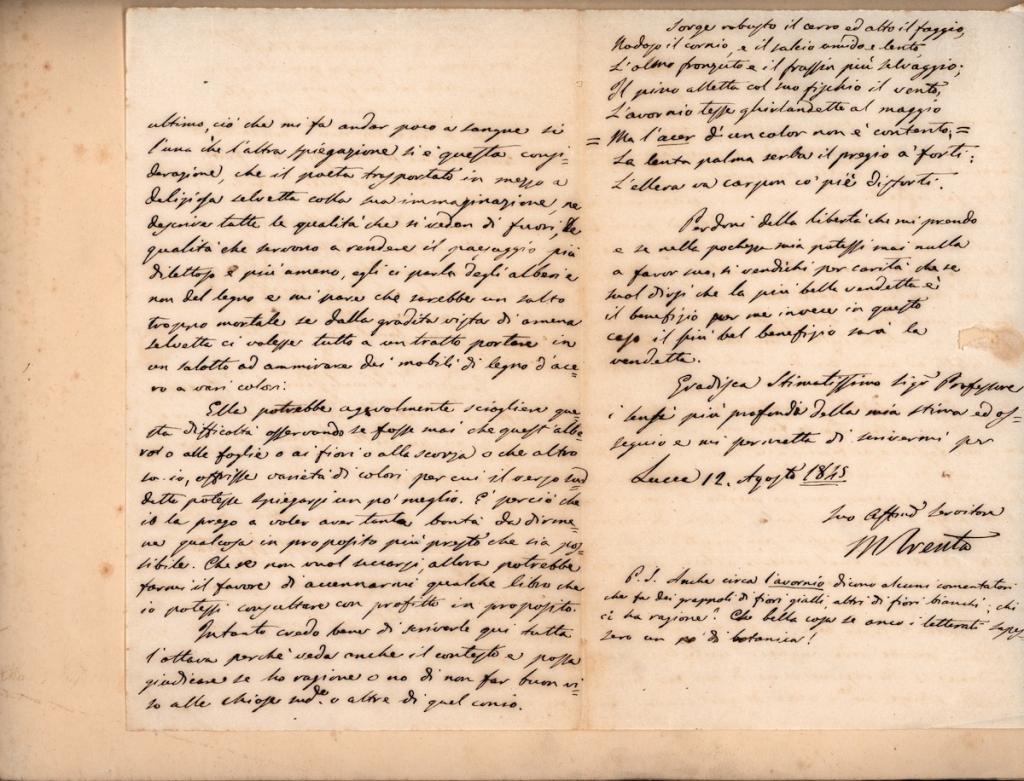 ultimo, ciò che mi fa andar poco a sangue sì
l'una che l'altra spiegazione si è questa consi-
derazione, che il poeta trasportato in mezzo a
deliziosa selvetta colla sua immaginazione, ne
descrive tutte le qualità che si vedon di fuori, le
qualità che servono a rendere il paesaggio più
dilettoso e più ameno, egli ci parla degli alberi e
non del legno e mi pare che sarebbe un salto
troppo mortale se dalla gradita vista di amena
selvetta ci volesse tutto a un tratto portare in
un salotto ad ammirare dei mobili di legno d'ace-
ro a vari colori.
Ella potrebbe agevolmente sciogliere que
sta difficoltà osservando se fosse mai che quest'albe-
ro o alle foglie o ai fiori o alla scorza o che altro
so io, offrisse varietà di colori per cui il verso sud
detto potesse spiegarsi un po' meglio. E perciò che
io la prego a voler aver tanta bontà da dirme-
ne qualcosa in proposito più presto che sia pos-
sibile. Che se non vuol seccarsi, allora potrebbe
farmi il favore di accennarmi qualche libro che
io potessi consultare con profitto in proposito.
Intanto credo bene di scriverle qui tutta
l'ottava perchè veda anche il contesto e possa
giudicare se ho ragione o no di non far buon vi-
so alle chiose sud.e o altre di quel conio.
Sorge robusto il cerro ed alto il faggio,
Nodoso il cornio, e il salcio umido e lento
L'olmo fronzuto e il frassin più selvaggio;
Il pino alletta col suo fischio il vento,
L'avornio tesse ghirlandette al maggio
= Ma l'acer d'un color non è contento, =
La lenta palma serba il pregio a' forti;
L'ellera va carpon co' piè distorti.
Perdoni della libertà che mi prendo
e se nella pochezza mia potessi mai nulla
a favor suo, si vendichi per carità che se
suol dirsi che la più bella vendetta è
il benefizio per me invece in questo
caso il più bel benefizio sarà la
vendetta.
Gradisca Stimatissimo Sig.r Professore
i sensi più profondi della mia stima ed os-
sequio e mi permetta di scrivermi per
Lucca 12. Agosto 1845
Suo Affmo Servitore
M Trenta
P. S. Anche circa l'avornio dicono alcuni comentatori
che fa dei grappoli di fiori gialli, altri di fiori bianchi; chi
ci ha ragione? Che bella cosa se anco i letterati sapes
sero un po' di botanica!